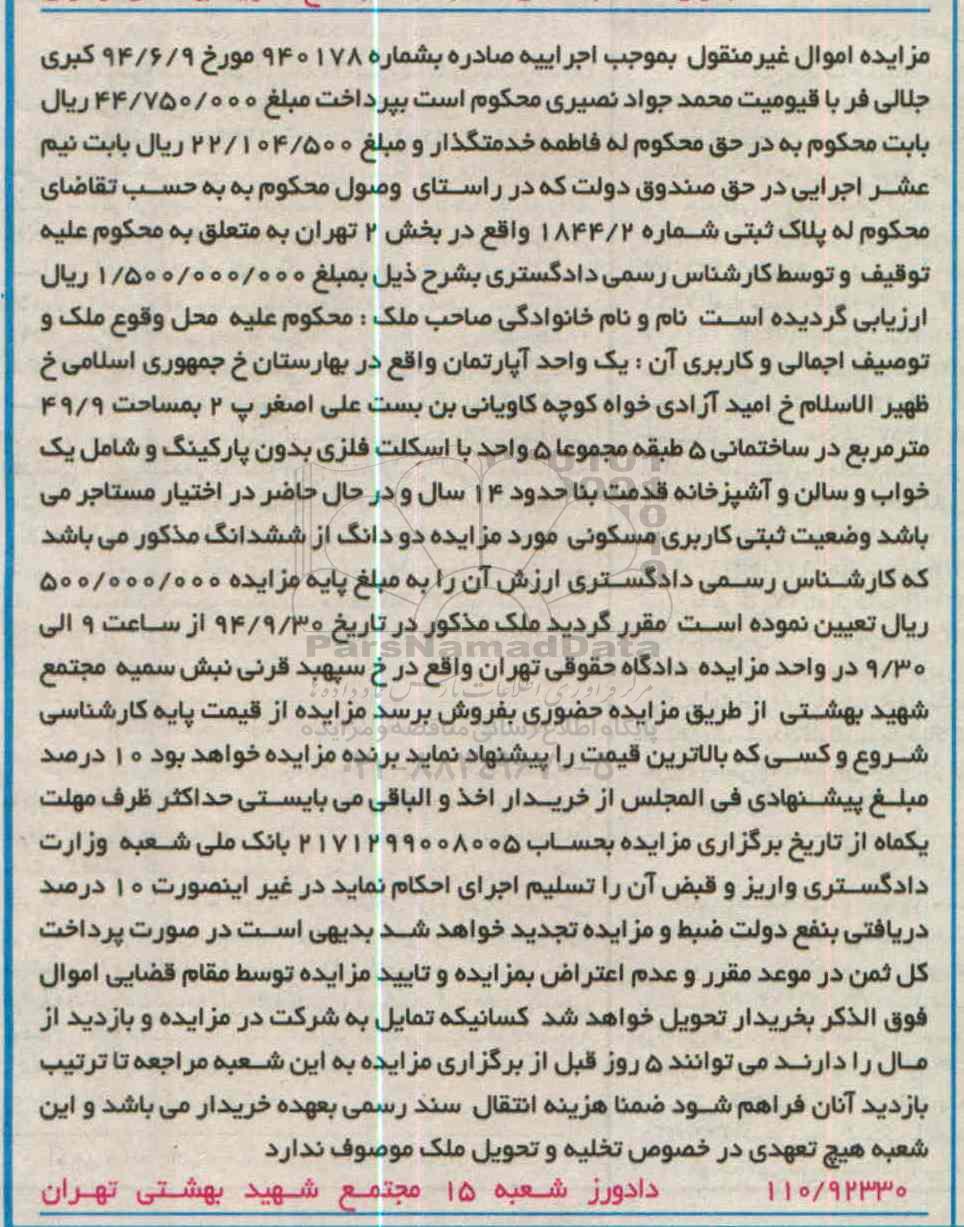 مزایده اموال غیرمنقول بموجب اجراییه صادره بشماره ۹۴۰۱۷۸ مورخ ۹۴/۶/۹ کبری
جلالی فر با قیومیت محمد جواد نصیری محکوم است بپرداخت مبلغ ۴۴/۷۵۰/۰۰۰ ریال
بابت محکوم به در حق محکوم له فاطمه خدمتگذار و مبلغ ۲۲/۱۰۴/۵۰۰ ریال بابت نیم
عشر اجرایی در حق صندوق دولت که در راستای وصول محکوم به به حسب تقاضای
محکوم له پلاک ثبتی شماره ۱۸۴۴/۲ واقع در بخش ۲ تهران به متعلق به محکوم علیه
توقیف و توسط کارشناس رسمی دادگستری بشرح ذیل بمبلغ ۱/۵۰۰/۰۰۰/۰۰۰ ریال
ارزیابی گردیده است نام و نام خانوادگی صاحب ملک : محکوم علیه محل وقوع ملک و
توصیف اجمالی و کاربری آن : یک واحد آپارتمان واقع در بهارستان خ جمهوری اسلامی خ
ظهیر الاسلام خ امید آزادی خواه کوچه کاویانی بن بست علی اصغر پ ۲ بمساحت ۴۹/۹
مترمربع در ساختمانی ۵ طبقه مجموعا ۵ واحد با اسکلت فلزی بدون پارکینگ و شامل یک
خواب و سالن و آشپزخانه قدمت بنا حدود ۱۴ سال و در حال حاضر در اختیار مستاجر می
باشد وضعیت ثبتی کاربری مسکونی مورد مزایده دو دانگ از ششدانگ مذکور می باشد
که کارشناس رسمی دادگستری ارزش آن را به مبلغ پایه مزایده ۵۰۰/۰۰۰/۰۰۰
ریال تعیین نموده است مقرر گردید ملک مذکور در تاریخ ۹۴/۹/۳۰ از ساعت ۹ الی
ParsNamadData
۹/۳۰ در واحد مزایده دادگاه حقوقی تهران واقع در خ سپهبد قرنی نبش سمیه مجتمع
شهید بهشتی از طریق مزایده حضوری بفروش برسد مزایده از قیمت پایه کارشناسی
پایگاه اطلاع رسانی مناقصه و مزایده
شروع و کسی که بالاترین قیمت را پیشنهاد نماید برنده مزایده خواهد بود ۱۰ درصد
مبلغ پیشنهادی فی المجلس از خریدار اخذ و الباقی می بایستی حداکثر ظرف مهلت
یکماه از تاریخ برگزاری مزایده بحساب ۲۱۷۱۲۹۹۰۰۸۰۰۵ بانک ملی شعبه وزارت
دادگستری واریز و قبض آن را تسلیم اجرای احکام نماید در غیر اینصورت ۱۰ درصد
دریافتی بنفع دولت ضبط و مزایده تجدید خواهد شد بدیهی است در صورت پرداخت
کل ثمن در موعد مقرر و عدم اعتراض بمزایده و تایید مزایده توسط مقام قضایی اموال
فوق الذکر بخریدار تحویل خواهد شد کسانیکه تمایل به شرکت در مزایده و بازدید از
مال را دارند می توانند ۵ روز قبل از برگزاری مزایده به این شعبه مراجعه تا ترتیب
بازدید آنان فراهم شود ضمنا هزینه انتقال سند رسمی بعهده خریدار می باشد و این
شعبه هیچ تعهدی در خصوص تخلیه و تحویل ملک موصوف ندارد
۱۱۰/۹۲۳۳۰ دادورز شعبه ۱۵ مجتمع شهید بهشتی تهران